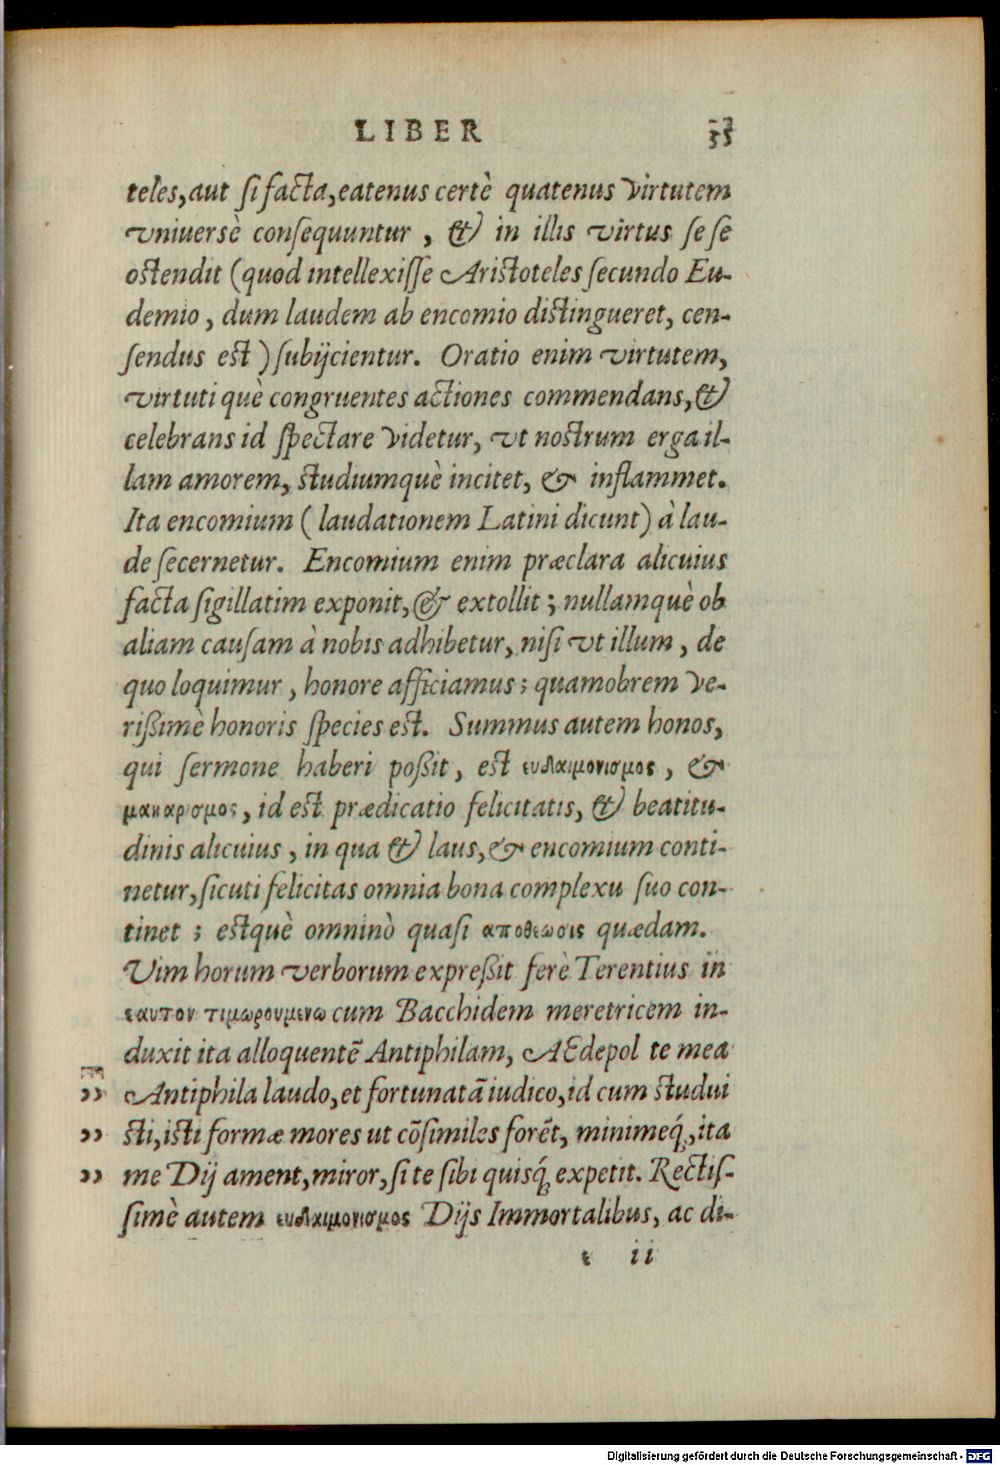 LIBER 35
teles, aut si facta, eatenus certè quatenus virtutem
vniuersè consequuntur, & in illis virtus sese
ostendit (quod intellexisse Aristoteles secundo Eu-
demio, dum laudem ab encomio distingueret, cen-
sendus est) subijcientur. Oratio enim virtutem,
virtutiquè congruentes actiones commendans, &
celebrans id spectare videtur, vt nostrum erga il-
lam amorem, studiumquè incitet, & inflammet.
Ita encomium (laudationem Latini dicunt) à lau-
de secernetur. Encomium enim præclara alicuius
facta sigillatim exponit, & extollit; nullamquè ob
aliam causam à nobis adhibetur, nisi vt illum, de
quo loquimur, honore afficiamus; quamobrem ve-
rißimè honoris species est. Summus autem honos,
qui sermone haberi poßit, est ευδαιμονισμος, &
μακαρισμος, id est prædicatio felicitatis, & beatitu-
dinis alicuius, in qua & laus, & encomium conti-
netur, sicuti felicitas omnia bona complexu suo con-
tinet; estquè omninò quasi αποθεωσις quædam.
Vim horum verborum expreßit ferè Terentius in
εαυτον τιμωρουμενω cum Bacchidem meretricem in-
duxit ita alloquentē Antiphilam, AEdepol te mea
,, Antiphila laudo, et fortunatā iudico, id cum studui
,, sti, isti formæ mores ut cōsimiles forēt, minimeq́;, ita
,, me Dij ament, miror, si te sibi quisq́; expetit. Rectis-
simè autem ευδαιμονισμος Dijs Immortalibus, ac di-
e ii
Digitalisierung gefördert durch die Deutsche Forschungsgemeinschaft - DFG